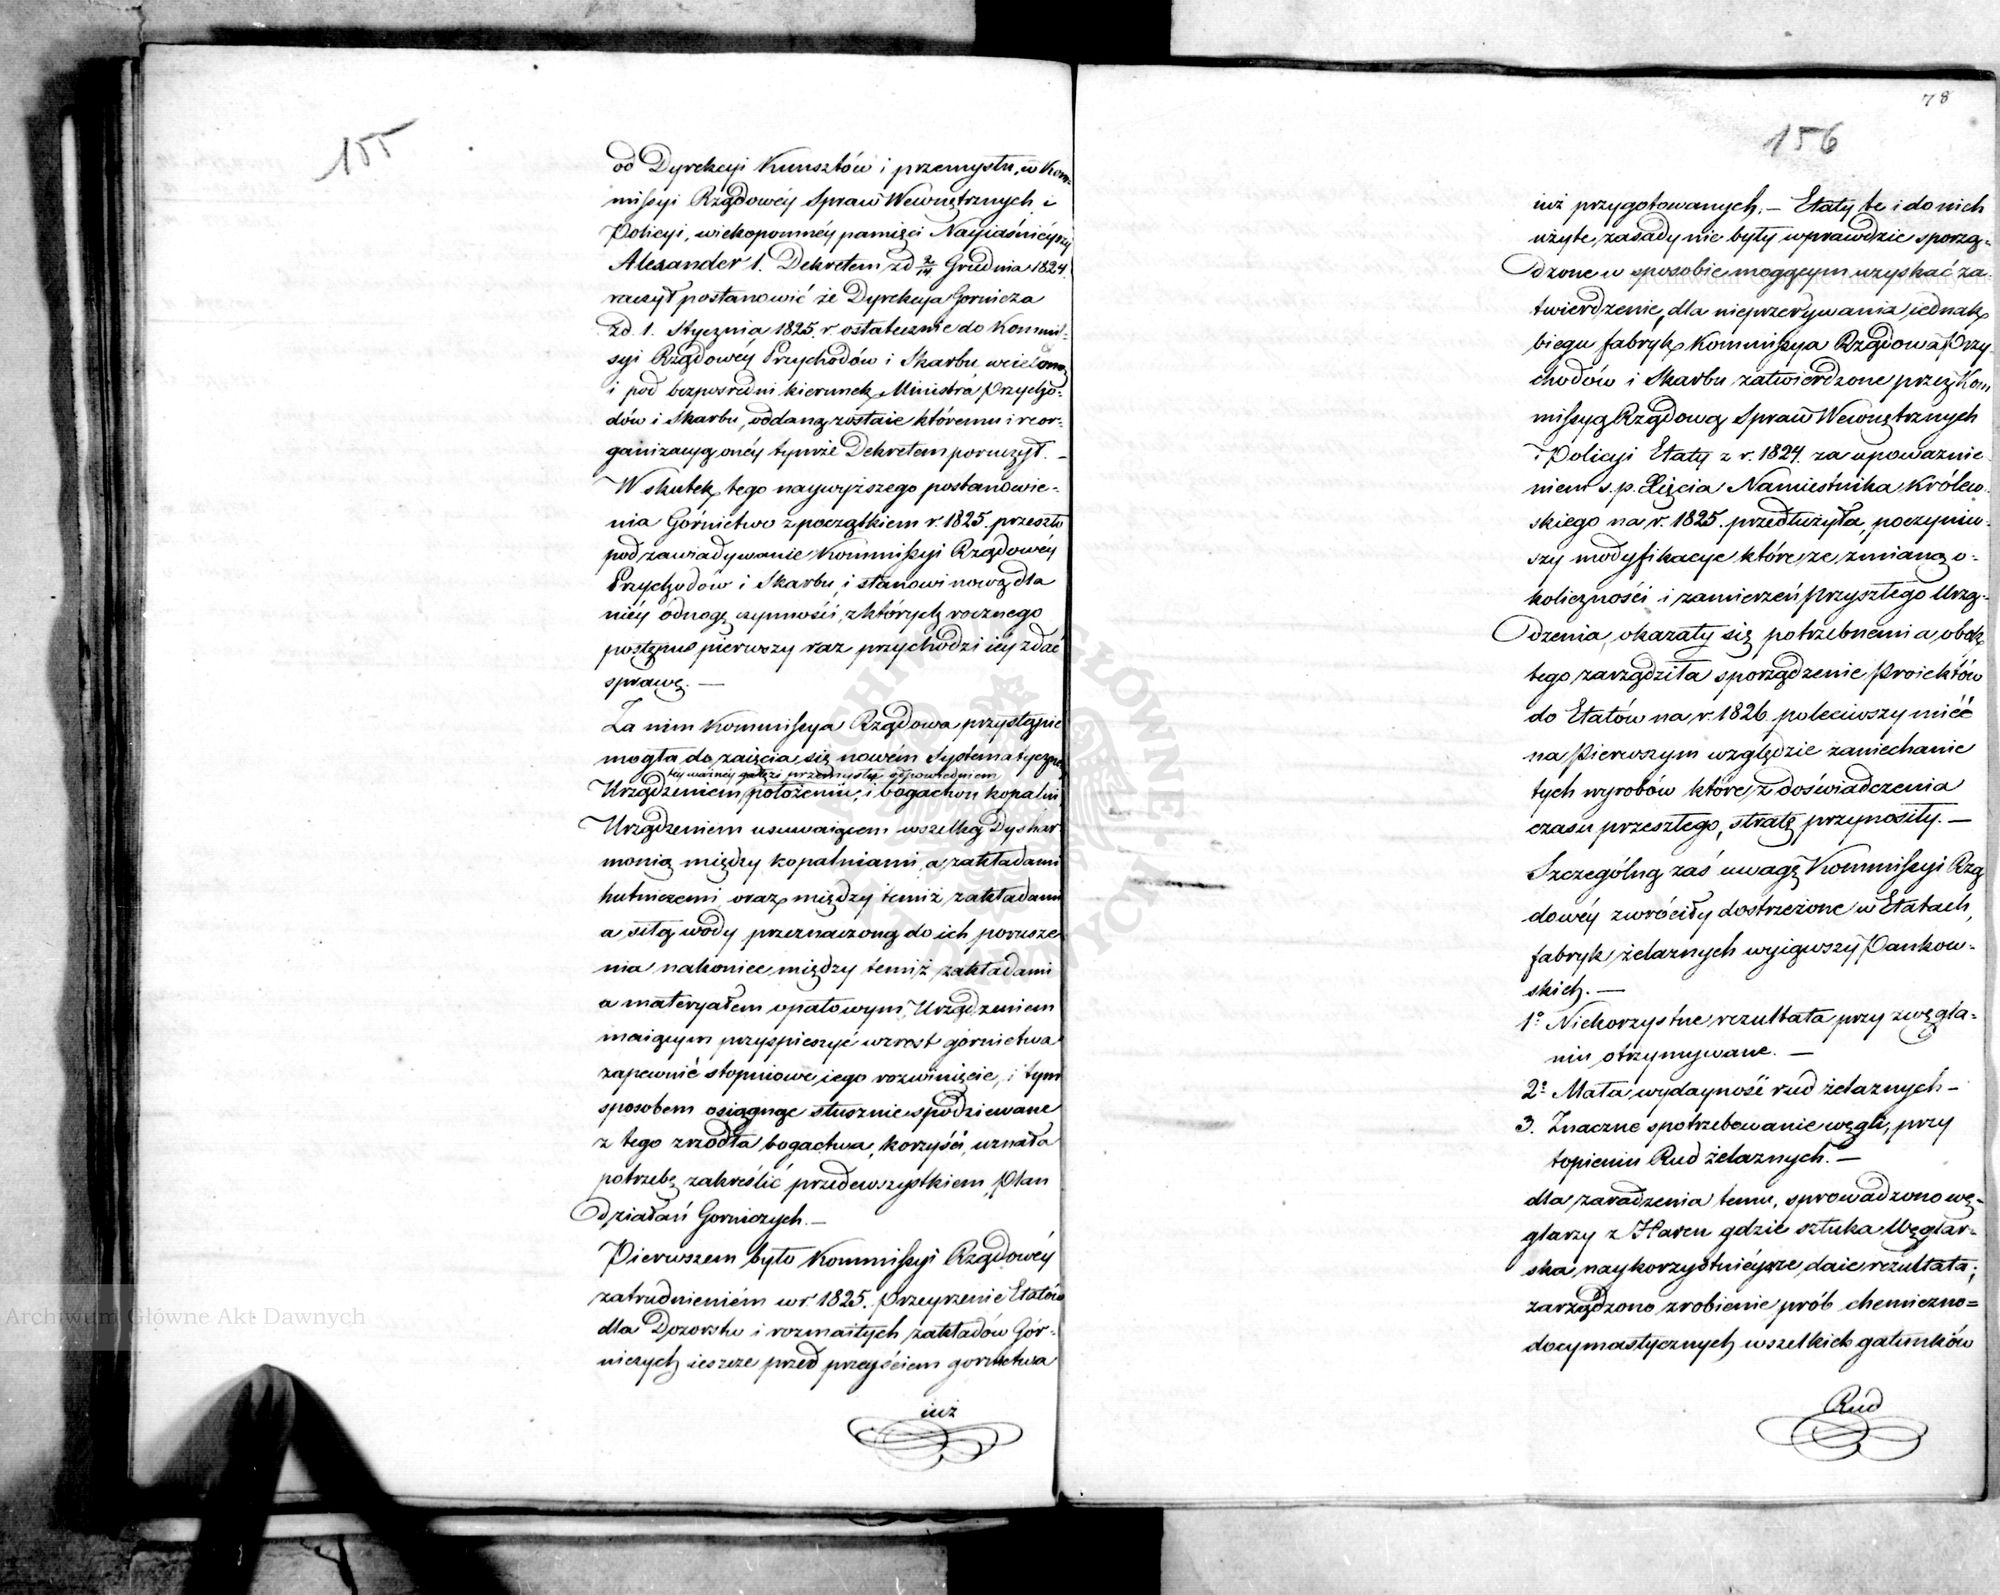 155
od Dyrekcyi Kunsztów i przemysłu, w Kom-
missyi Rządowéy Spraw Wewnętrznych i
Policyi, wiekopomnéy pamięci Nayiaśnieyszy
Alexander 1. Dekretem zd 2/14 Grudnia 1824
raczył postanowić że Dyrekcya Gornicza
zd. 1. Stycznia 1825. r. ostatecznie do Kommis-
syi Rządowéy Przychodów i Skarbu wcieloną
i pod bezpośredni kierunek Ministra Przycho-
dów i Skarbu, oddaną zostaie któremu i reor-
ganizacyą onéy tymże Dekretem poruczył. —
W skutek tego naywyższego postanowie-
nia Górnictwo z początkiem r. 1825. przeszło
pod zawiadywanie Kommissyi Rządowéy
Przychodów i Skarbu, i stanowi nową dla
niéy odnogę czynności, z których rocznego
postępu pierwszy raz przychodzi iéy zdać
sprawę. —
Za nim Kommissya Rządowa przystąpić
mogła do zaięcia się nowém systematyczném
téy ważnéy gałęzi przemysłu odpowiedniem
Urządzeniem położeniu, i bogactwu kopalni
Urządzeniem usuwaiącem wszelką Dyshar-
monią między kopalniami, a zakładami
hutniczemi, oraz między temiż zakładami
a siłą wody przeznaczoną do ich porusze-
nia nakoniec między temiż zakładami
a materyałem opałowym, Urządzeniem
maiącym przyspieszyć wzrost górnictwa
zapewnić stopniowe iego rozwinięcie, i tym
sposobem osiągnąć słusznie spodziewane
z tego zrzódła bogactwa, korzyści, uznała
potrzebę zakreślić przedewszystkiem, Plan
działań Gorniczych. —
Pierwszem było Kommissyi Rządowéy
zatrudnieniém w r. 1825. Przeyrzenie Etatów
dla Dozorstw i rozmaitych zakładów Gór-
niczych ieszcze przed przeyściem gornictwa
iuż
78
156
iuż przygotowanych. — Etaty te i do nich
użyte, zasady nie były wprawdzie sporzą-
dzone w sposobie mogącym uzyskać za-
twierdzenie, dla nieprzerywania iednak
biegu fabryk Kommissya Rządowa Przy-
chodów i Skarbu zatwierdzone przez Kom
missyą Rządową Spraw Wewnętrznych
i Policyi Etaty z r. 1824. za upoważnie-
niem s. p. Xięcia Namiestnika Królew-
skiego na r. 1825. przedłużyła, poczyniw-
szy modyfikacye które ze zmianą o-
koliczności i zamierzeń przyszłego Urzą-
dzenia, okazały się potrzebnemi a obok
tego zarządziła sporządzenie Proiektów
do Etatów na r. 1826. poleciwszy mieć
na pierwszym względzie zaniechanie
tych wyrobów które, z doświadczenia
czasu przeszłego, stratę przynosiły. —
Szczególną zaś uwagę Kommissyi Rzą
dowéy zwróciły dostrzeżone w Etatach,
fabryk żelaznych wyiąwszy Pankow-
skich. —
1o Niekorzystne rezultata przy zwęgla-
niu otrzymywane. —
2o Mała wydayność rud żelaznych —
3. Znaczne spotrzebowanie węgli, przy
topieniu Rud żelaznych. —
dla zaradzenia temu, sprowadzono wę-
glarzy z Haren gdzie sztuka Węglar-
ska naykorzystnieysze daie rezultata;
zarządzono zrobienie prób chemiczno=
docymastycznych wszelkich gatunków
Rud
Archiwum Główne Akt Dawnych